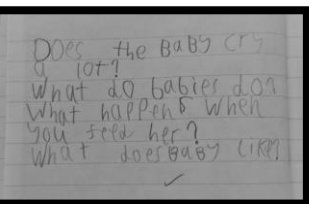 Does the BaBy cry
a lot?
What do babies do?
What happens when
you feed her?
What does BaBy like?